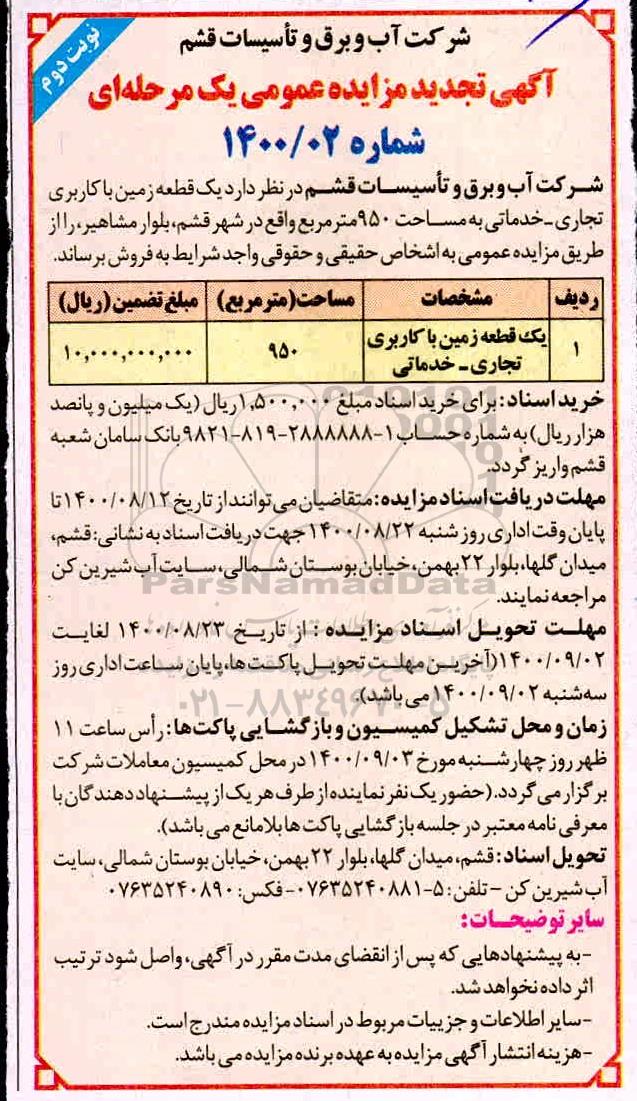 نوبت دوم
شرکت آب و برق و تأسیسات قشم
آگهی تجدید مزایده عمومی یک مرحله‌ای
شماره ۱۴۰۰/۰۲
شرکت آب و برق و تأسیسات قشم در نظر دارد یک قطعه زمین با کاربری
تجاری - خدماتی به مساحت ۹۵۰ متر مربع واقع در شهر قشم، بلوار مشاهیر، را از
طریق مزایده عمومی به اشخاص حقیقی و حقوقی واجد شرایط به فروش برساند.
ردیف مشخصات مساحت (متر مربع) مبلغ تضمین (ریال)
۱ یک قطعه زمین با کاربری تجاری - خدماتی ۹۵۰ ۱۰,۰۰۰,۰۰۰,۰۰۰
خرید اسناد: برای خرید اسناد مبلغ ۱,۵۰۰,۰۰۰ ریال (یک میلیون و پانصد
هزار ریال) به شماره حساب ۱-۲۸۸۸۸۸۸-۸۱۹-۹۸۲۱ بانک سامان شعبه
قشم واریز گردد.
مهلت دریافت اسناد مزایده: متقاضیان می‌توانند از تاریخ ۱۴۰۰/۰۸/۱۲ تا
پایان وقت اداری روز شنبه ۱۴۰۰/۰۸/۲۲ جهت دریافت اسناد به نشانی: قشم،
میدان گلها، بلوار ۲۲ بهمن، خیابان بوستان شمالی، سایت آب شیرین کن
مراجعه نمایند.
ParsNamadData
مهلت تحویل اسناد مزایده: از تاریخ ۱۴۰۰/۰۸/۲۳ لغایت
۱۴۰۰/۰۹/۰۲ (آخرین مهلت تحویل پاکت‌ها، پایان ساعت اداری روز
سه شنبه ۱۴۰۰/۰۹/۰۲ می باشد).
۰۲۱-۸۸۳۴۹۶۷۰-۵
زمان و محل تشکیل کمیسیون و بازگشایی پاکت‌ها: رأس ساعت ۱۱
ظهر روز چهارشنبه مورخ ۱۴۰۰/۰۹/۰۳ در محل کمیسیون معاملات شرکت
برگزار می گردد. (حضور یک نفر نماینده از طرف هر یک از پیشنهاد دهندگان با
معرفی نامه معتبر در جلسه بازگشایی پاکت ها بلامانع می باشد).
تحویل اسناد: قشم، میدان گلها، بلوار ۲۲ بهمن، خیابان بوستان شمالی، سایت
آب شیرین کن – تلفن: ۵-۰۷۶۳۵۲۴۰۸۸۱- فکس: ۰۷۶۳۵۲۴۰۸۹۰
سایر توضیحات:
-به پیشنهادهایی که پس از انقضای مدت مقرر در آگهی، واصل شود ترتیب
اثر داده نخواهد شد.
-سایر اطلاعات و جزییات مربوط در اسناد مزایده مندرج است.
-هزینه انتشار آگهی مزایده به عهده برنده مزایده می باشد.